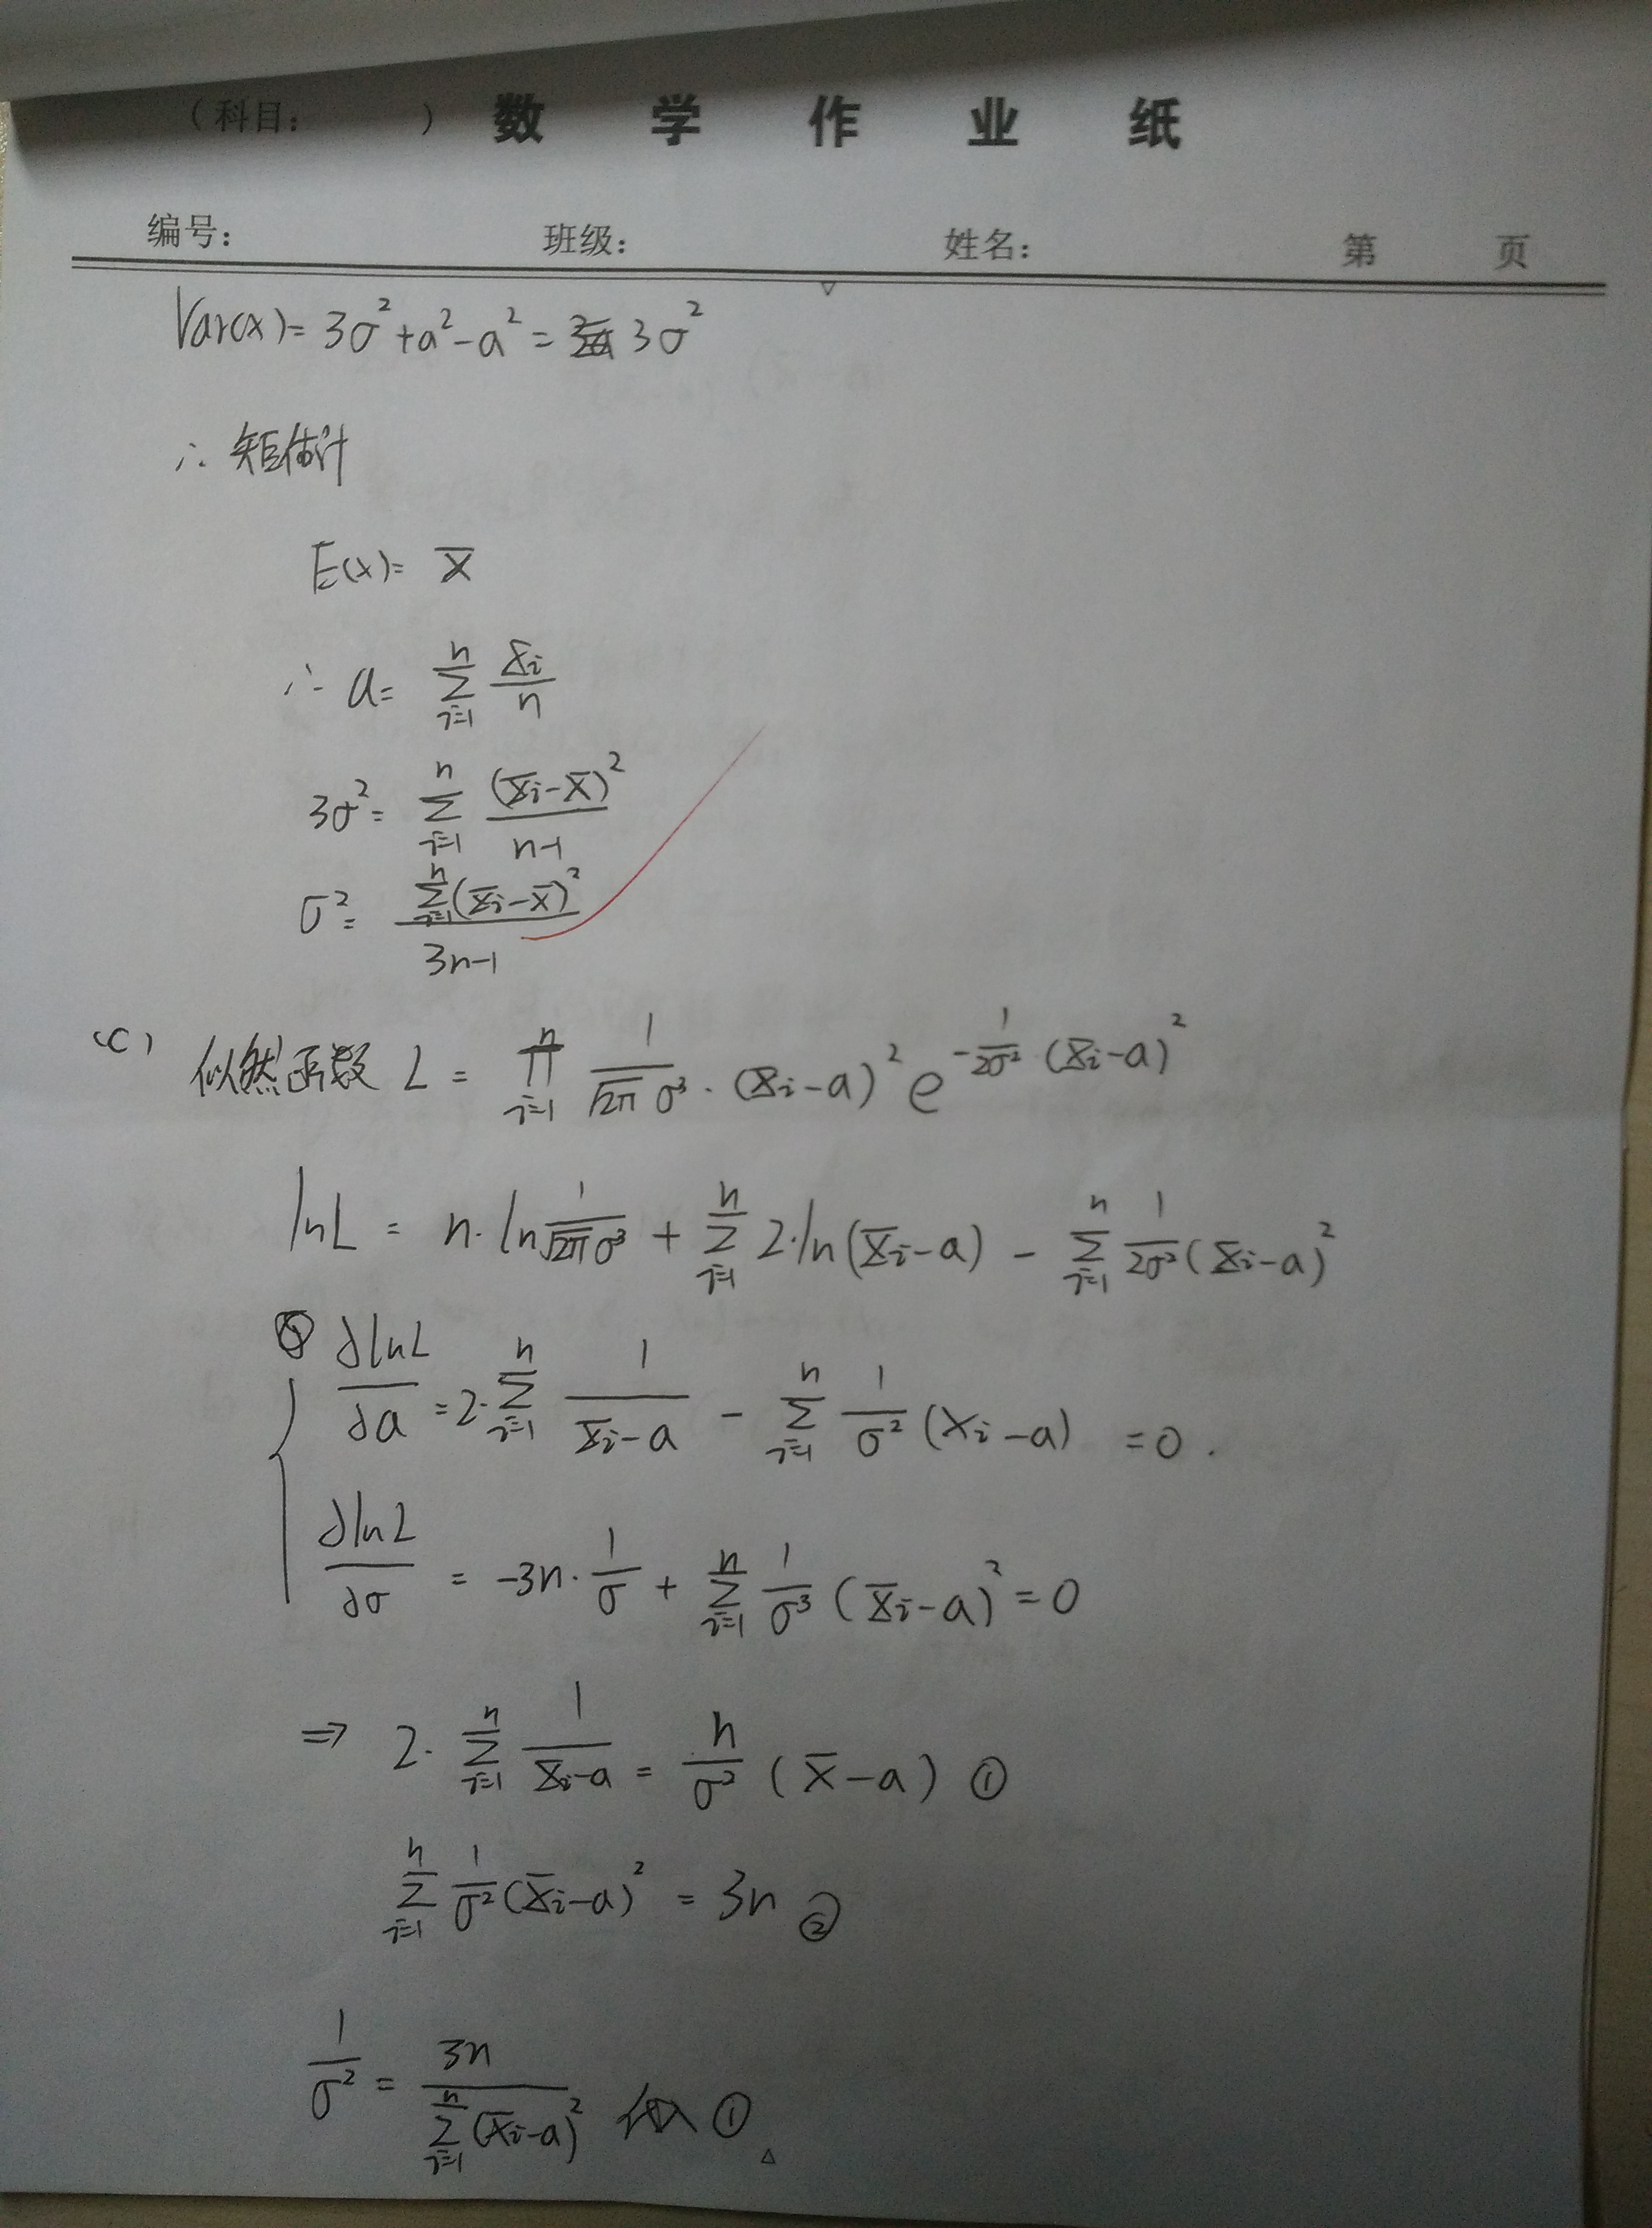 （科目： ） 数 学 作 业 纸
编号： 班级： 姓名： 第 页
Var(x)= 3σ²+a²-a² = 3σ²
∴ 矩估计
E(x)= X̄
∴ a= Σ_{i=1}^{n} X_i/n
3σ²= Σ_{i=1}^{n} (X_i-X̄)²/(n-1)
σ²= Σ_{i=1}^{n}(X_i-X̄)²/(3n-1)
(c) 似然函数 L = ∏_{i=1}^{n} 1/(√2π σ³) · (X_i-a)² e^{-1/(2σ²) (X_i-a)²}
lnL = n·ln 1/(√2π σ³) + Σ_{i=1}^{n} 2·ln(X_i-a) - Σ_{i=1}^{n} 1/(2σ²) (X_i-a)²
∂lnL/∂a = 2·Σ_{i=1}^{n} 1/(X_i-a) - Σ_{i=1}^{n} 1/σ² (X_i-a) =0.
∂lnL/∂σ = -3n·1/σ + Σ_{i=1}^{n} 1/σ³ (X_i-a)² = 0
⇒ 2·Σ_{i=1}^{n} 1/(X_i-a) = n/σ² (X̄-a) ①
Σ_{i=1}^{n} 1/σ² (X_i-a)² = 3n ②
1/σ² = 3n/Σ_{i=1}^{n}(X_i-a)² 代入①